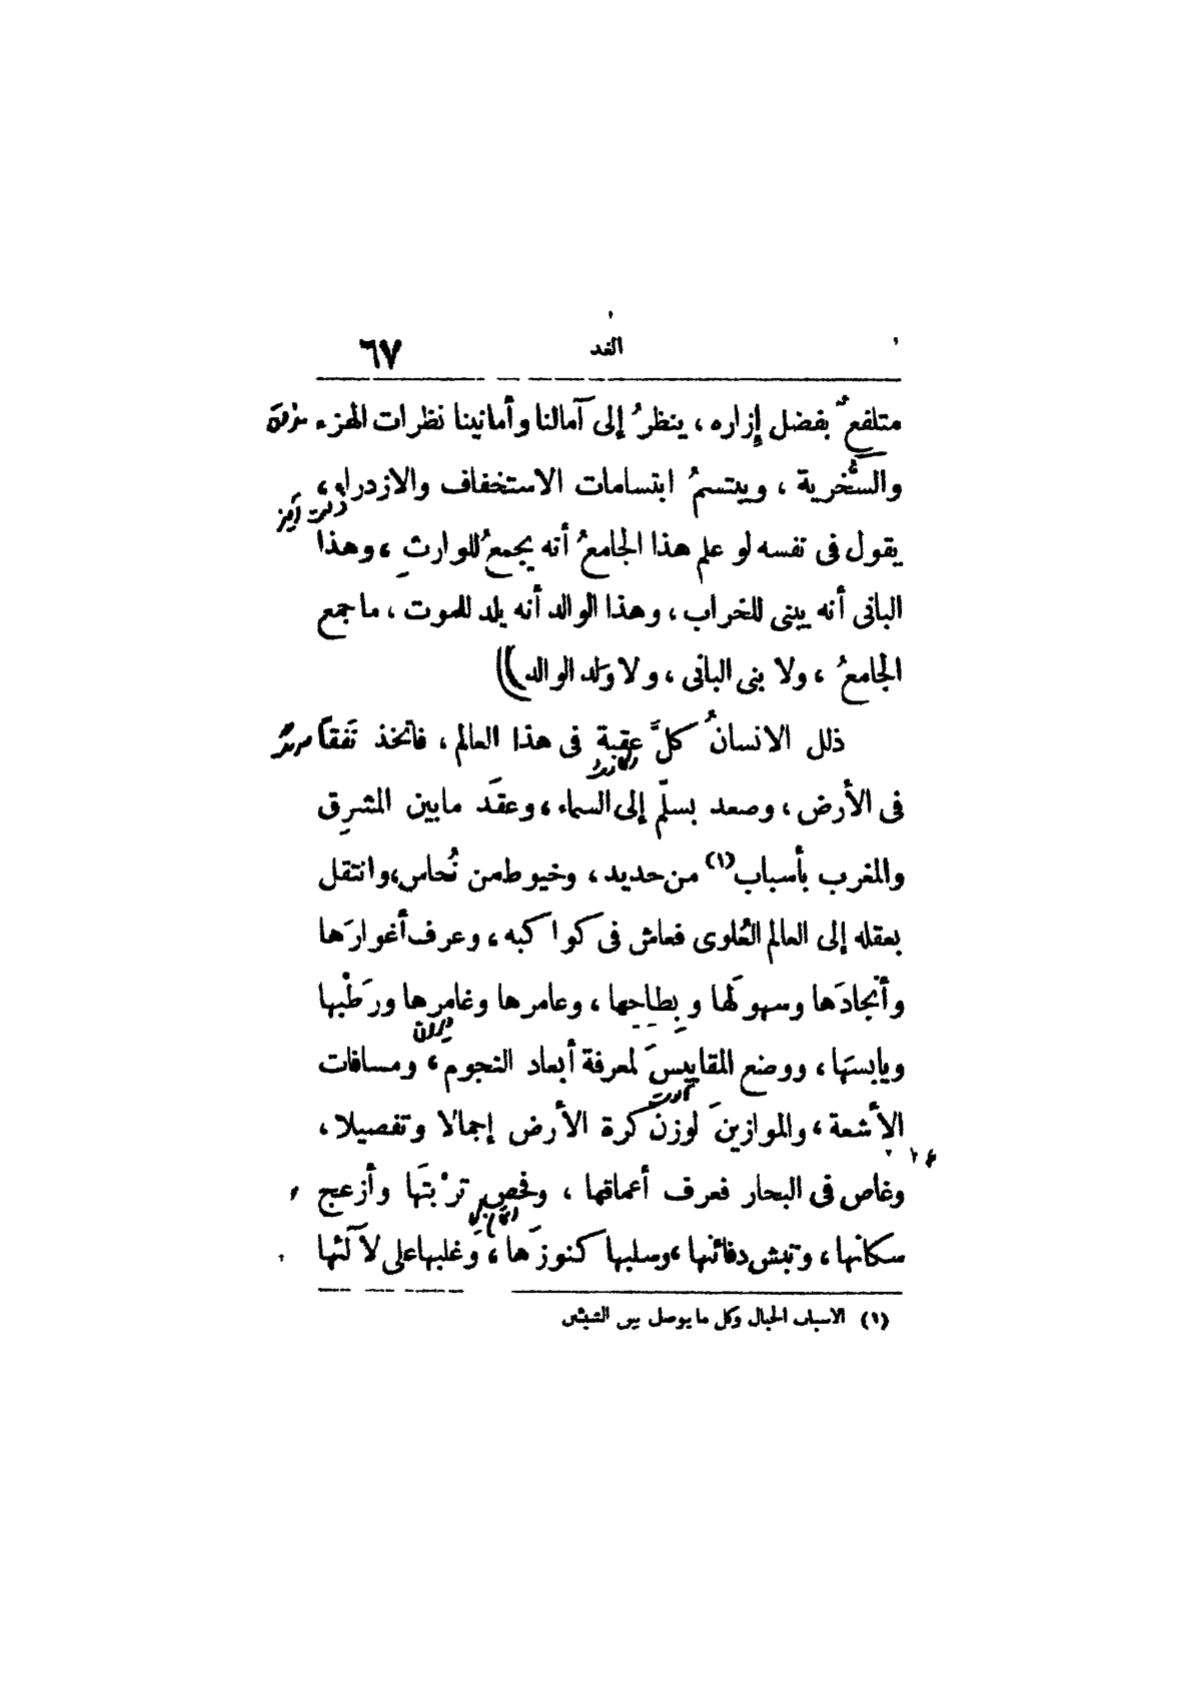 الغد ٦٧
متلفعٌ بفضل إزاره ، ينظرُ إلى آمالنا وأمانينا نظرات الهزء
والسُّخرية ، ويبتسمُ ابتسامات الاستخفاف والازدراء ،
يقول فى نفسه لو علم هذا الجامعُ أنه يجمعُ للوارثِ ، وهذا
البانى أنه يبنى للخراب ، وهذا الوالد أنه يلد للموت ، ما جمع
الجامعُ ، ولا بنى البانى ، ولا وَلد الوالد
ذلل الانسانُ كلَّ عقبة فى هذا العالم ، فاتخذ نَفقاً
فى الأرض ، وصعد بسلّم إلى السماء ، وعقَد مابين المشرِق
والمغرب بأسباب (١) من حديد ، وخيوط من نُحاس ، وانتقل
بعقله إلى العالم العُلوى فعاش فى كواكبه ، وعرف أغوارَها
وأنجادَها وسهولَها وبِطاحِها ، وعامرها وغامِرها ورَطْبها
ويابسَها ، ووضع المقاييسَ لمعرفة أبعاد النجوم ، ومسافات
الأشعة ، والموازينَ لوزن كرة الأرض إجمالا وتفصيلا ،
وغاص فى البحار فعرف أعماقها ، وفحص تُرْبتَها وأزعج
سكانها ، ونبش دفائنها ، وسلبها كنوزَها ، وغلبها على لآلئها
(١) الاسباب الحبال وكل ما يوصل بين الشيئين